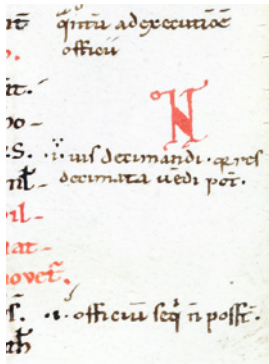 q̄ntū ad executiōē
officii
N
.i. uis decimandi . q̄ res
decimata uēdi pōt.
it.
po-
.S.
at-
.i. officiū seq̄ n̄ possēt.